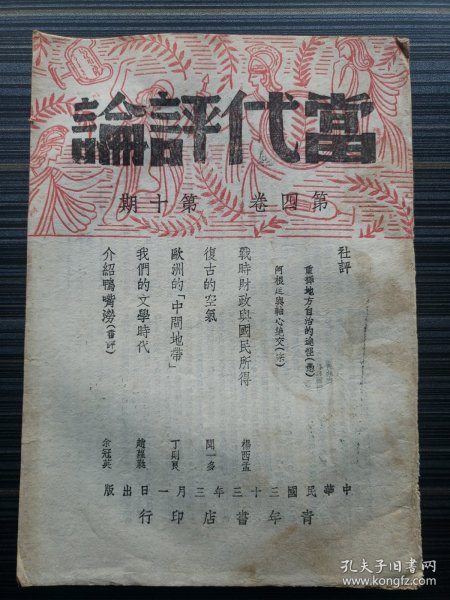 當代評論
第四卷　第十期
社評
重鄉地方自治的途徑（楚）
阿根廷與軸心絕交（宋）
戰時財政與國民所得　楊西孟
復古的空氣　聞一多
歐洲的「中間地帶」　丁則良
我們的文學時代　趙蘿蕤
介紹鴨嘴澇（書評）　余冠英
中華民國三十三年三月一日出版
青年書店印行
孔夫子旧书网
www.kongfz.com